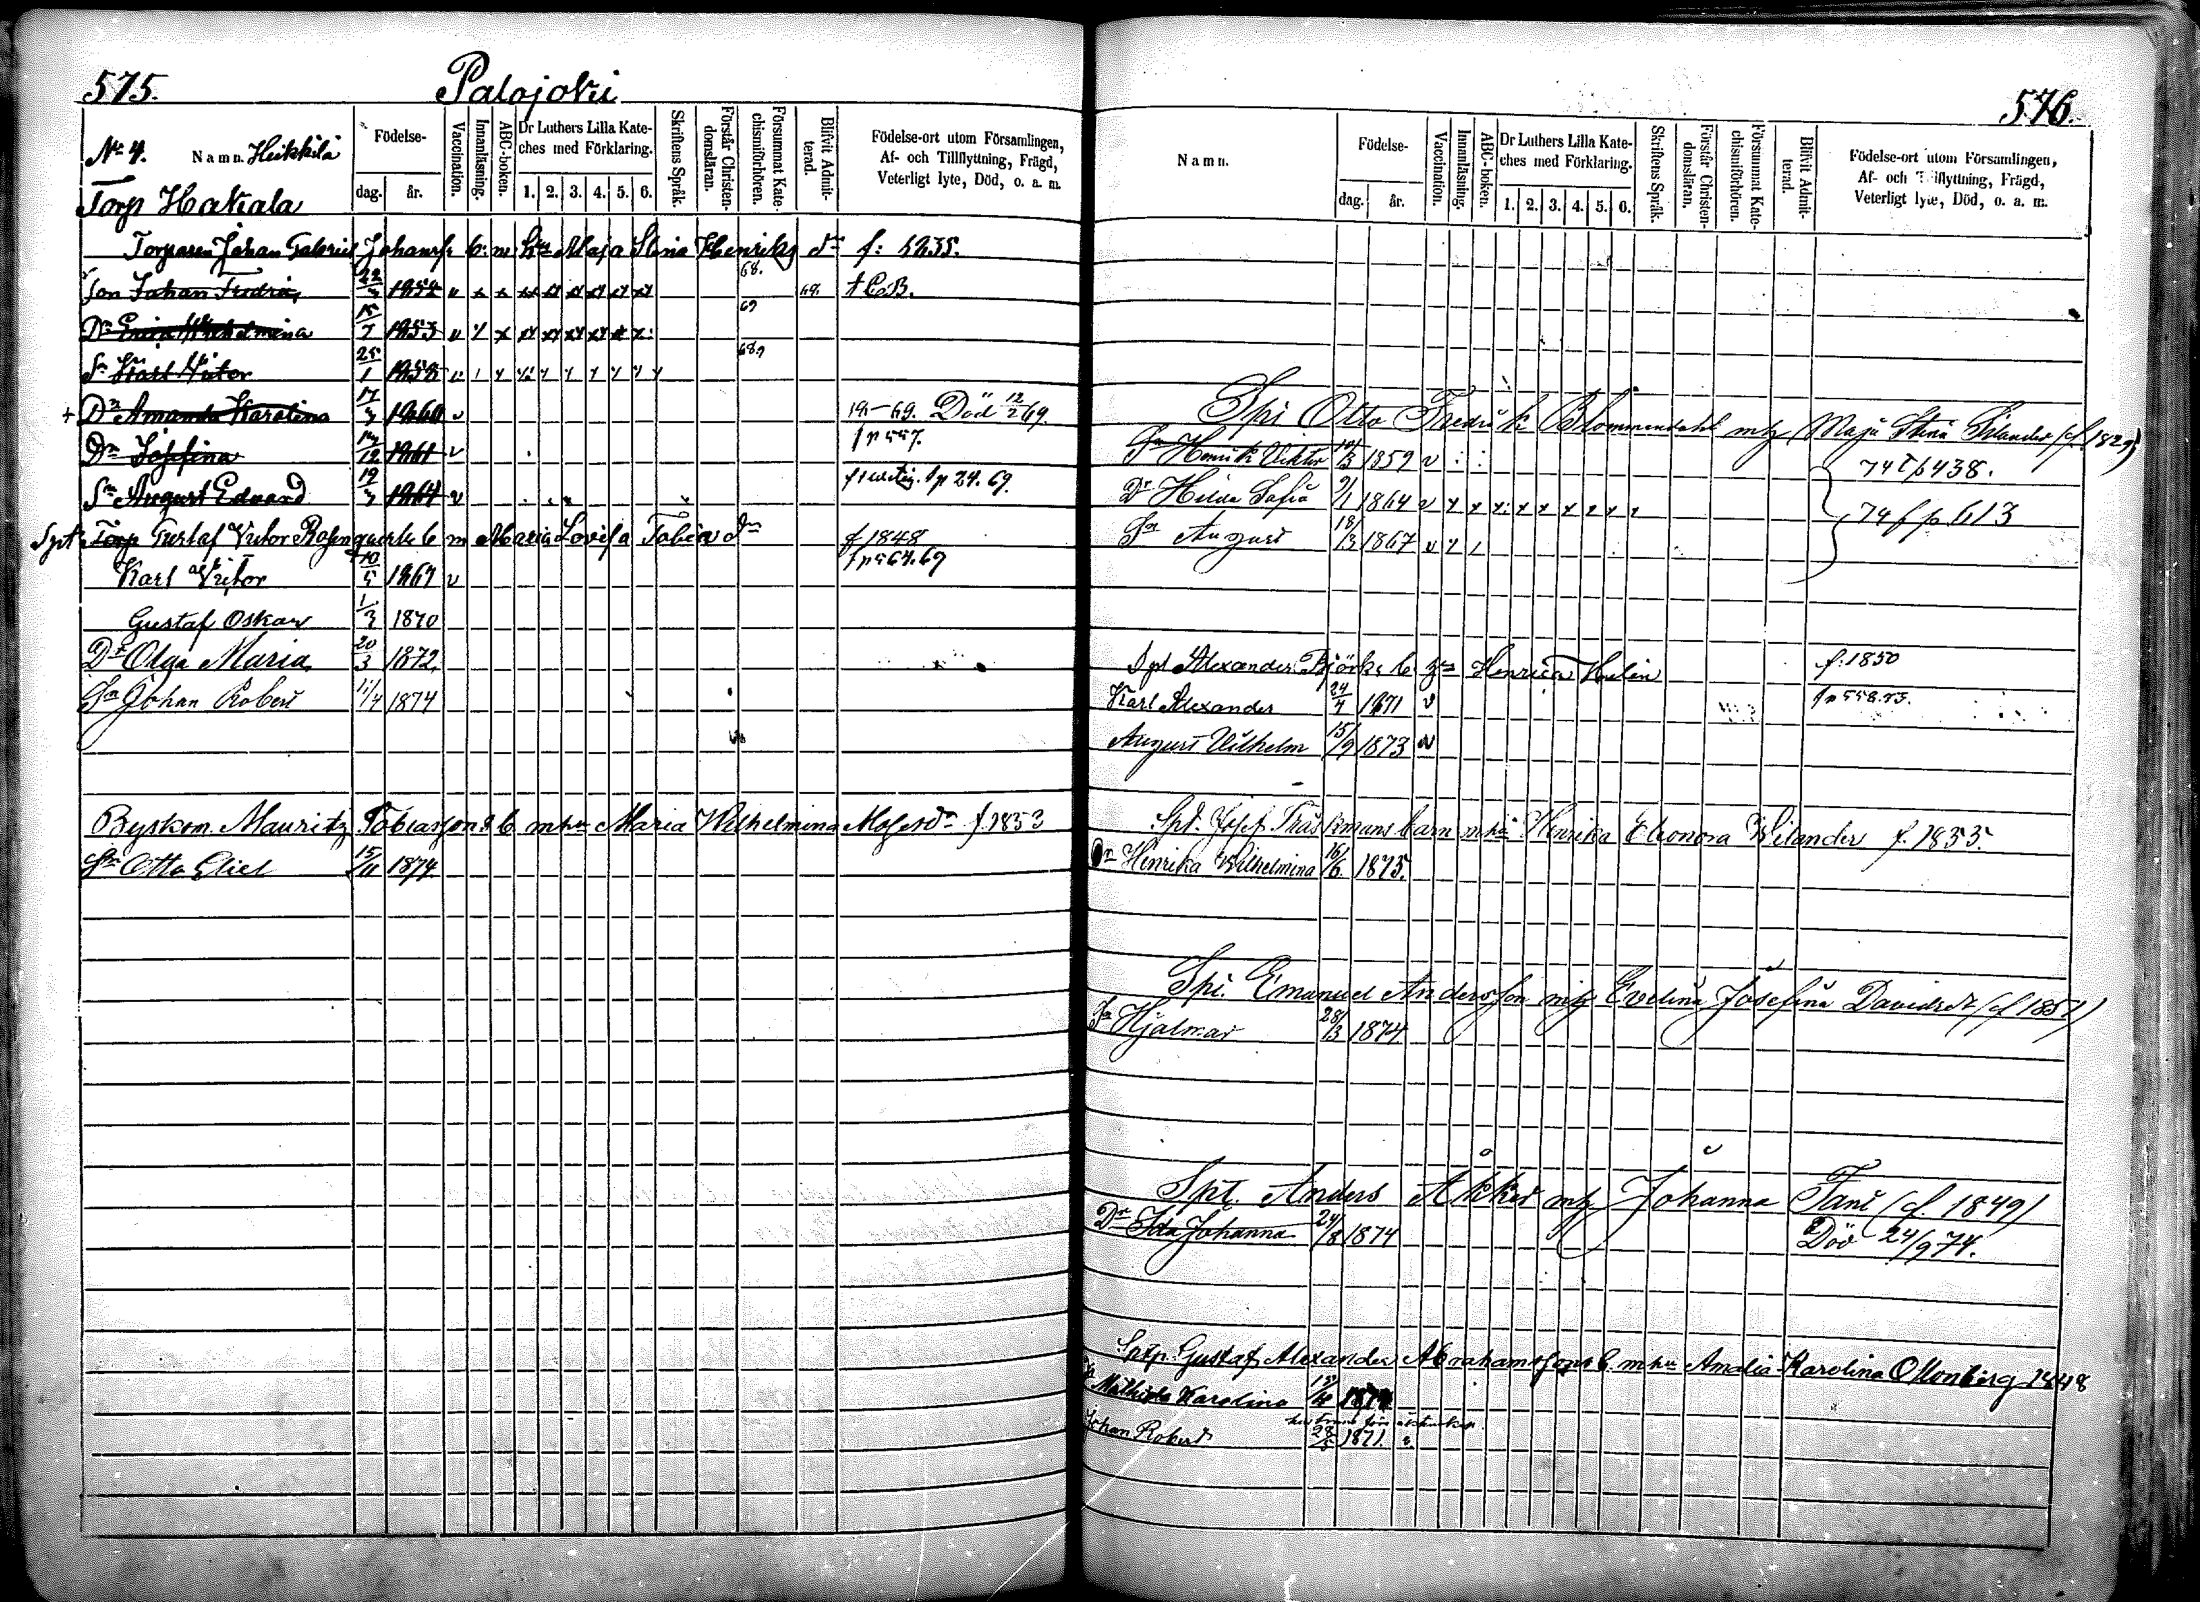 575.
Palojoki
No 4.
Namn. Heikkilä
Födelse-
dag. år.
Vaccination.
Innanläsning.
ABC-boken.
Dr Luthers Lilla Kate-
ches med Förklaring.
1. 2. 3. 4. 5. 6.
Skriftens Språk.
Förstår Christen-
domsläran.
Försummat Kate-
chismiförhören.
Blifvit Admit-
terad.
Födelse-ort utom Församlingen,
Af- och Tillflyttning, Frägd,
Veterligt lyte, Död, o. a. m.
Torp Hakala
Torparen Johan Gabriel Johanss. b. m. hu Maja Stina Henriks dr f: 1835.
68.
Son Johan Fredri 22/3 1852 v x x 68.
69
Dr Wilhelmina 15/7 1853 v
68.
Sn Karl Viktor 25/1 1858 v
+ Dr Amanda Karolina 17/3 1860 v Död 12/2 69.
Dr Josefina 12 1861 v p 557.
Sn August Eduard 19/3 1864 v p 24. 69.
Spt Torp Gustaf Victor Rosenquists b m Maria Lovisa Tobias dr f 1848
Karl Victor 10/5 1869 v
Gustaf Oskar 1/3 1870
Dr Olga Maria 20/3 1872.
Sn Johan Robert 11/4 1874
Byskom. Mauritz Tobiassons b. m hu Maria Wilhelmina Mosesdr f. 1853
Sn Otto Eliel 15/11 1874.
576.
Namn.
Födelse-
dag. år.
Vaccination.
Innanläsning.
ABC-boken.
Dr Luthers Lilla Kate-
ches med Förklaring.
1. 2. 3. 4. 5. 6.
Skriftens Språk.
Förstår Christen-
domsläran.
Försummat Kate-
chismiförhören.
Blifvit Admit-
terad.
Födelse-ort utom Församlingen,
Af- och Tillflyttning, Frägd,
Veterligt lyte, Död, o. a. m.
Spi Otto Fredrik Blommendahl mhg Maja Stina Silander (f. 1829)
Sn Henrik Viktor /3 1859 v 74 t p 438.
Dr Hilda Sofia 9/1 1864 v
Sn August 18/3 1867 v 74 f p 613
Spt Alexander Björks b. Henrica Helin f: 1850
Karl Alexander 24/4 1871 v p 558. 73.
August Vilhelm 15/9 1873 v
Spt. Josef Träskmans barn m hu Henrika Eleonora Welander f. 1853.
Dr Henrika Wilhelmina 16/6. 1875.
Spi. Emanuel Andersson mhg Evelina Josefina Davidsdr (f 1851)
Sn Hjalmar 28/3 1874
Spt. Anders Åkker mhg Johanna Tani (f. 1849)
Dr Ida Johanna 24/8 1874 Död 24/9 74.
Sptp. Gustaf Alexander Abrahamssons b. m hu Amalia Karolina Ottenberg 1848
Mathilda Karolina 1874
Johan Robert 28/5 1871.